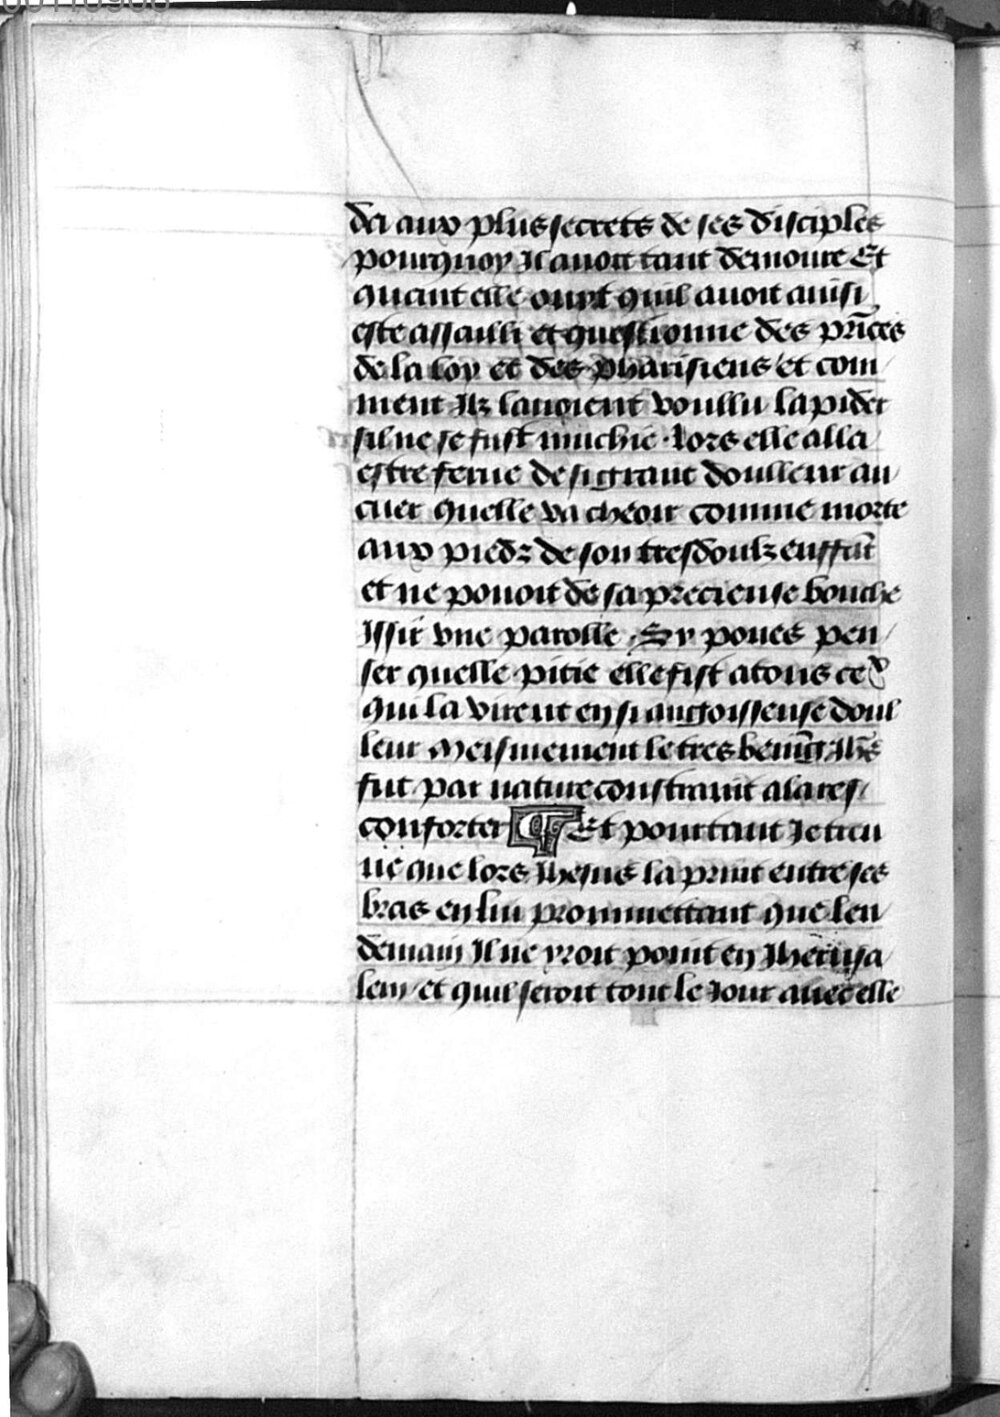 der aux plus secrets de ses disciples
pourquoy Il auoit tant demoure Et
quant elle ouyt quil auoit ainsi
este assailli et questionne des prīces
de la loy et des pharisiens et com
ment Ilz lauoient voullu lapider
sil ne se fust muchie . Lors elle alla
estre ferue de si grant doulleur au
cuer quelle va cheoir comme morte
aux piedz de son tresdoulz enffāt
et ne pouoit de sa precieuse bouche
Issir vne parolle . Sy poues pen
ser quelle pitie elle fist a tous ceux
qui la virent en si angoisseuse doul
leur Meismement le tres bening Ihs̄
fut par nature constraint a la res
conforter Et pourtant Ie treu
ue que lors Ihesus la print entre ses
bras en lui prommettant que len
demain Il ne yroit point en Iherusa
lem et quil seroit tout le Iour auec elle